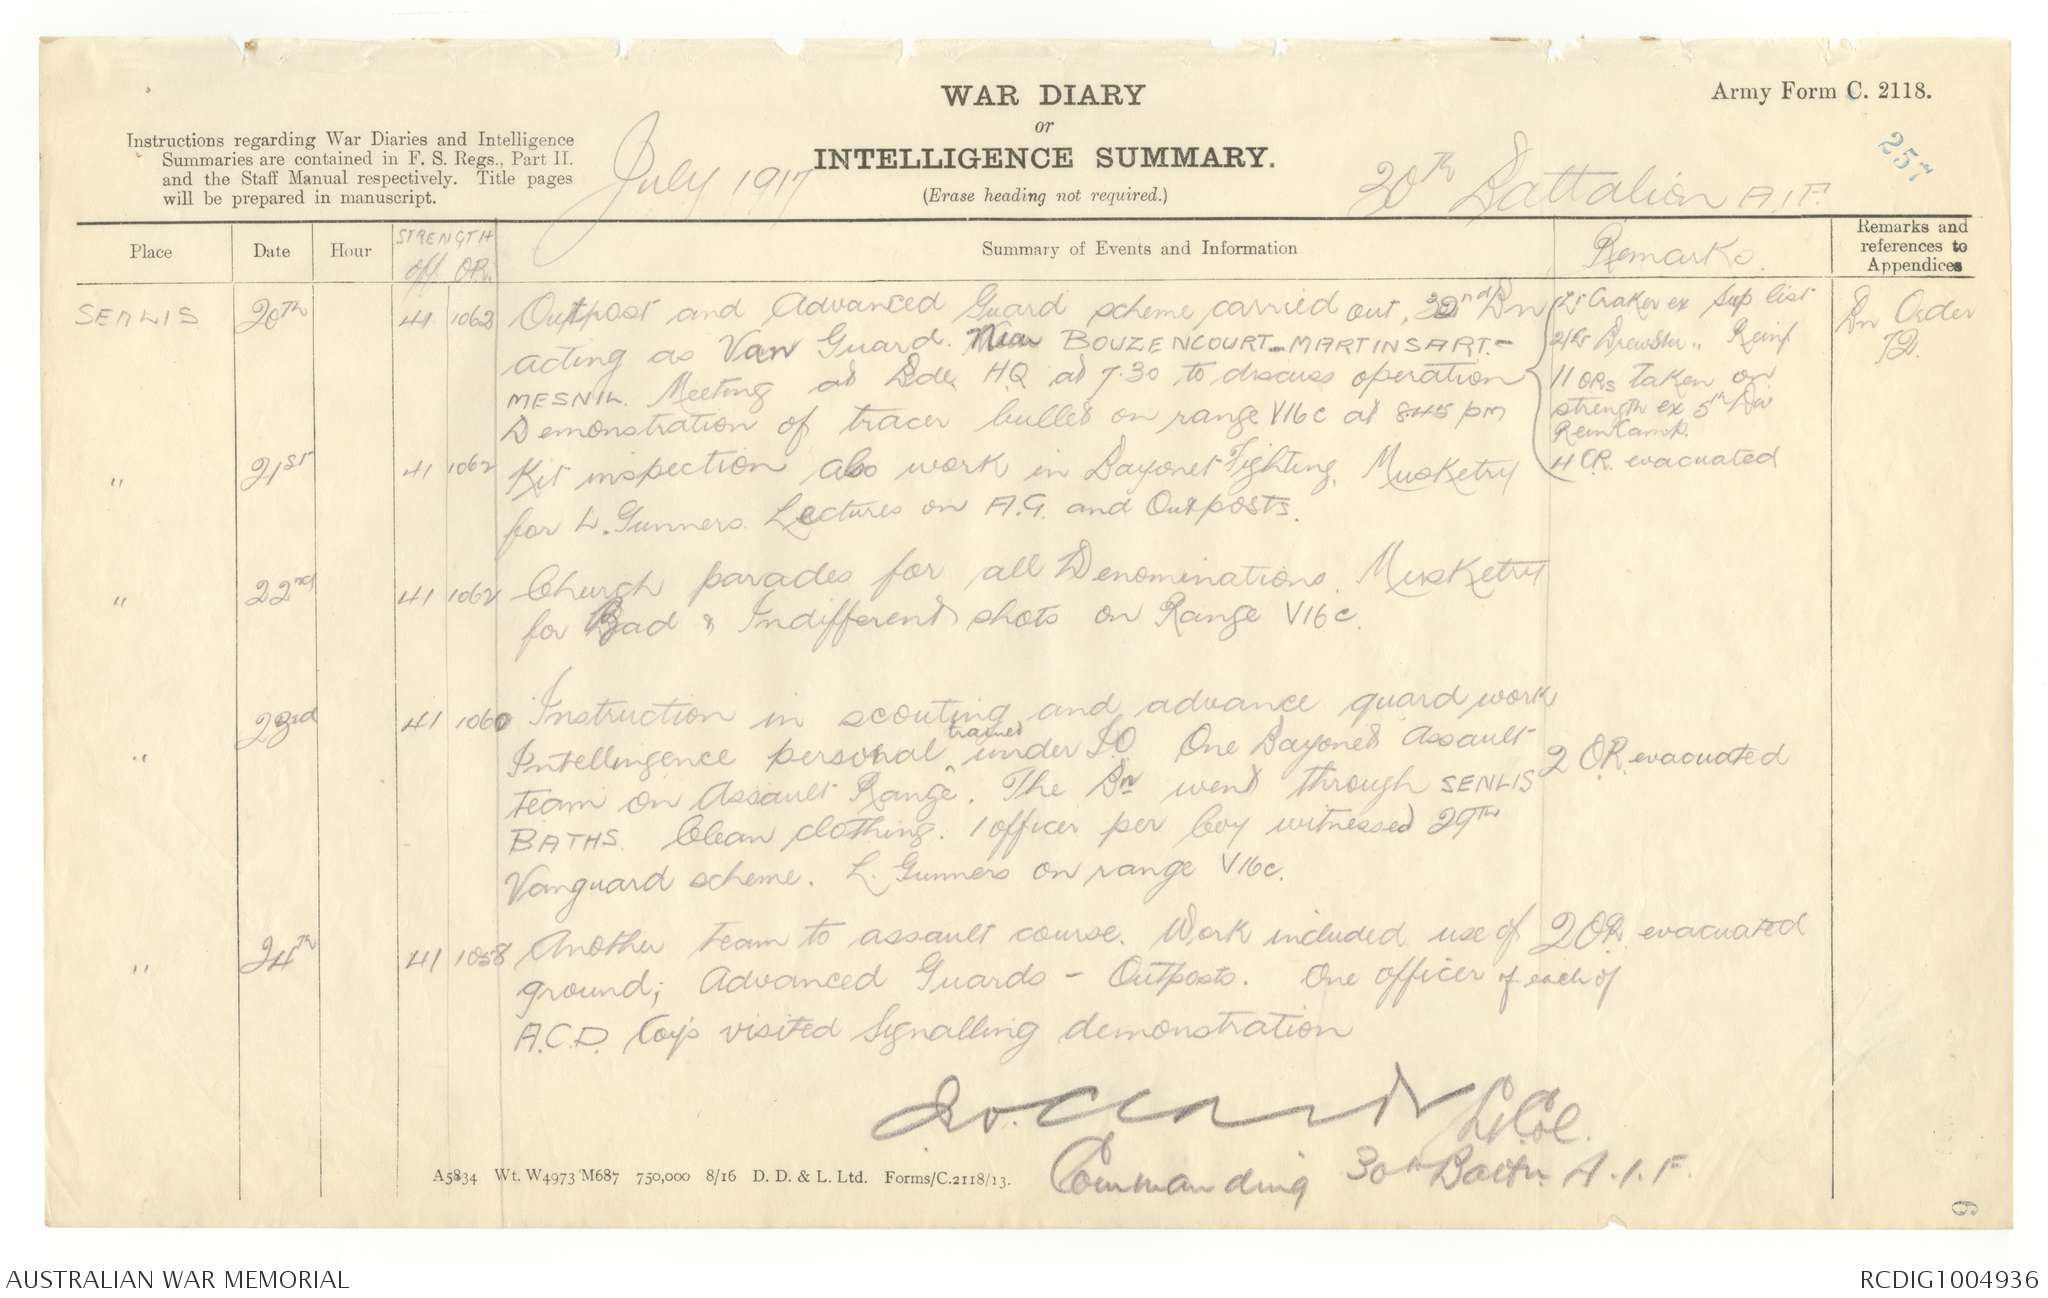 WAR DIARY
or
INTELLIGENCE SUMMARY.
(Erase heading not required.)
Army Form C. 2118.
257
Instructions regarding War Diaries and Intelligence
Summaries are contained in F. S. Regs., Part II.
and the Staff Manual respectively. Title pages
will be prepared in manuscript.
July 1917
30th Battalion A.I.F.
Place Date Hour STRENGTH Off. OR. Summary of Events and Information Remarks Remarks and references to Appendices
SENLIS 20TH 41 1062 Outpost and Advanced Guard scheme carried out, 32nd Bn
acting as Van Guard. Near BOUZENCOURT-MARTINSART.-
MESNIL. Meeting at Bde HQ at 7.30 to discuss operation
Demonstration of tracer bullet on range V16c at 845 pm
Lt Craker ex Sup list
2/Lt Brewster " Reinf
11 ORs taken on
strength ex 5th Div
Rein Camp.
4 OR. evacuated
Bn Order
" 21ST 41 1062 Kit inspection also work in Bayonet Fighting, Musketry
for L. Gunners. Lectures on A.G. and Outposts.
" 22nd 41 1062 Church parades for all Denominations. Musketry
for Bad & Indifferent shots on Range V16c.
" 23rd 41 1060 Instruction in scouting and advance guard work
Intellingence personal trained under IO. One Bayonet Assault
team on Assault Range. The Bn went through SENLIS
BATHS. Clean clothing. 1 officer per Coy witnessed 29TH
Vanguard scheme. L. Gunners on range V16c.
2 O.R. evacuated
" 24TH 41 1058 Another team to assault course. Work included use of
ground; Advanced Guards - Outposts. One officer of each of
A.C.D. Coy's visited Signalling demonstration
2 OR. evacuated
Lt. Col.
Commanding 30th Battn. A.I.F.
A5834 Wt. W4973 M687 750,000 8/16 D. D. & L. Ltd. Forms/C.2118/13.
6
AUSTRALIAN WAR MEMORIAL
RCDIG1004936